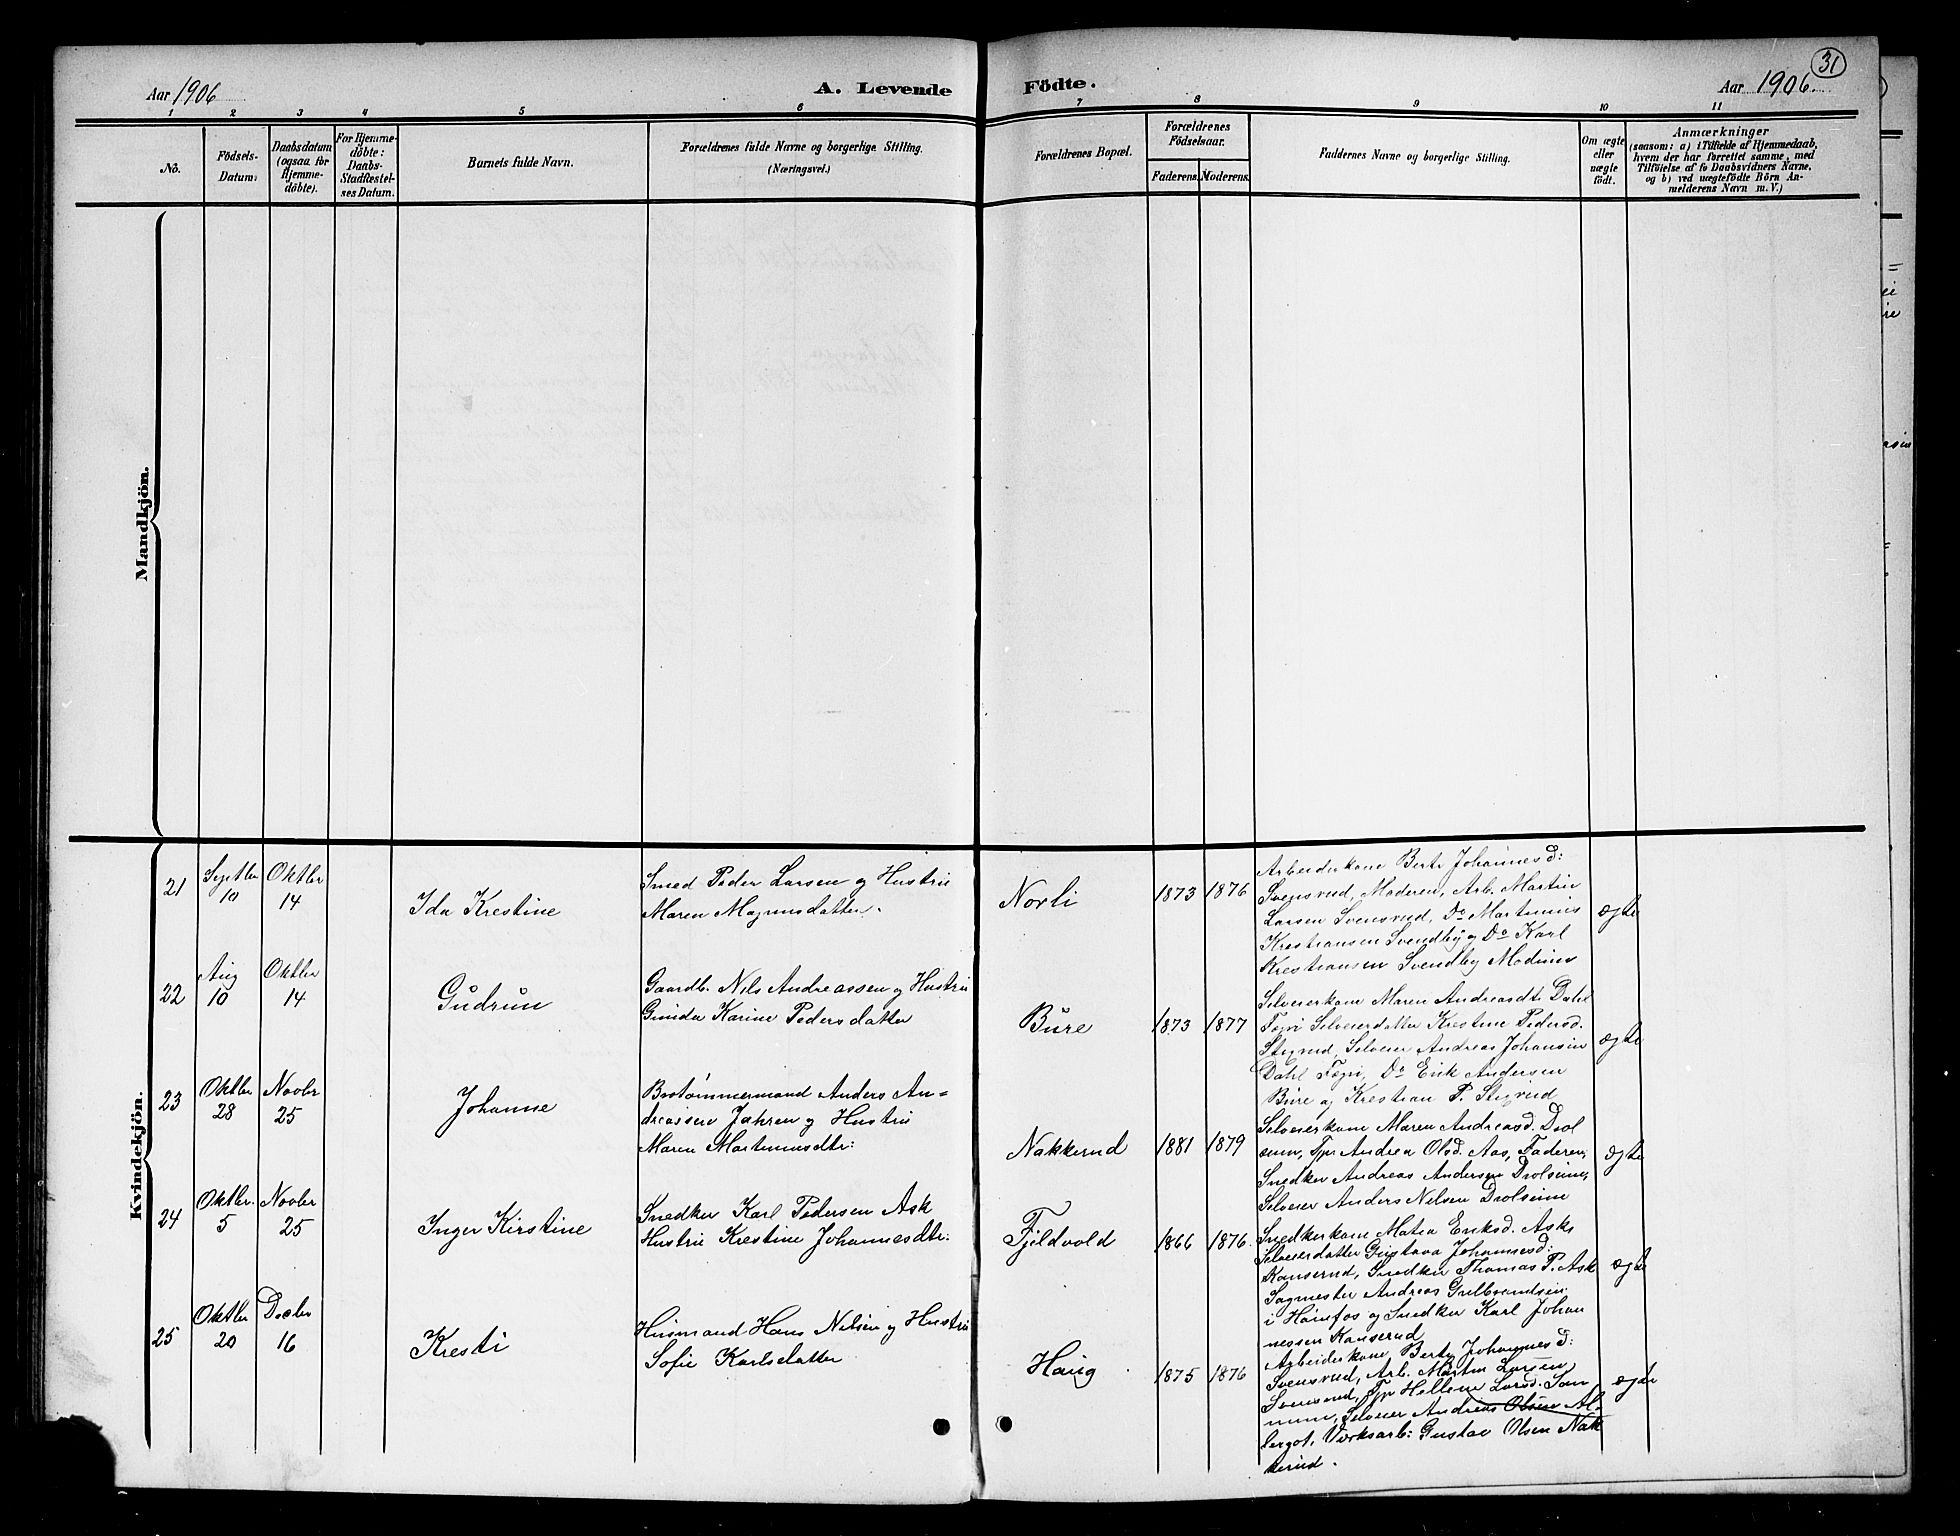 31
Aar 1906
A. Levende Födte.
Aar 1906.
1 2 3 4 5 6 7 8 9 10 11
No.
Födsels-
Datum.
Daabsdatum
(ogsaa for
Hjemme-
döbte).
For Hjemme-
döbte:
Daabs-
Stadfæstel-
ses Datum.
Barnets fulde Navn.
Forældrenes fulde Navne og borgerlige Stilling.
(Næringsvei.)
Forældrenes Bopæl.
Forældrenes
Födselsaar.
Faderens. Moderens.
Faddernes Navne og borgerlige Stilling.
Om ægte
eller
uægte
födt.
Anmærkninger
(saasom: a) i Tilfælde af Hjemmedaab,
hvem der har forrettet samme, med
Tilföielse af to Daabsvidners Navne,
og b) ved uægtefödte Börn An-
melderens Navn m. V.)
Mandkjön.
Kvindekjön.
21
Septbr
10
Oktbr
14
Ida Krestine
Smed Peder Larsen og Hustru
Maren Magnusdatter.
Norli
1873
1876
Arbeiderkone Berte Johannesd:
Svensrud, Moderen, Arb. Martin
Larsen Svensrud, Do Martinius
Kristiansen Svendby og Do Karl
Krestiansen Svendby Modum
ægte
22
Aug
10
Oktbr
14
Gudrun
Gaardb. Nils Andreassen og Hustru
Gunda Karine Pedersdatter
Bure
1873
1877
Selveierkone Maren Andreasdt. Dahl
Selveierdatter Krestine Pedersd.
Stigrud, Selveier Andreas Johansen
Dahl Do Erik Andersen
Bure og Krestian P. Stigrud
ægte
23
Oktbr
28
Novbr
25
Johanne
Anders An=
dreassen Jahren og Hustru
Maren Martinusdtr:
Nakkerud
1881
1879
Selveierkone Maren Andreasd. Drol
sum, Tjpi Andrea Olsd. Aas, Faderen,
Snedker Andreas Andersen Drolsum,
Selveier Anders Nilsen Drolsum
ægte
24
Oktbr.
5
Novbr
25
Inger Kirstine
Snedker Karl Pedersen Ask
Hustru Krestine Johannesdtr:
Fjeldvold
1866
1876.
Snedkerkone Matea Eriksd. Ask,
Selveierdatter Gustava Johannesd:
Kanserud, Snedker Thomas P. Ask
Sagmester Andreas Gulbrandsen
i Hønefos og Snedker Karl Johan
nessen Kanserud
ægte
25
Oktbr
20
Decbr
16
Kresti
Husmand Hans Nilsen og Hustru
Sofie Karlsdatter
Haug
1875
1876
Arbeiderkone Berte Johannesd:
Svensrud, Arb. Martin Larsen
Svensrud, Tjpi Hellene Larsd.
Selveier Andreas Olsen Al-
bergot, Værksarb: Gustav Olsen Nak
kerud.
ægte